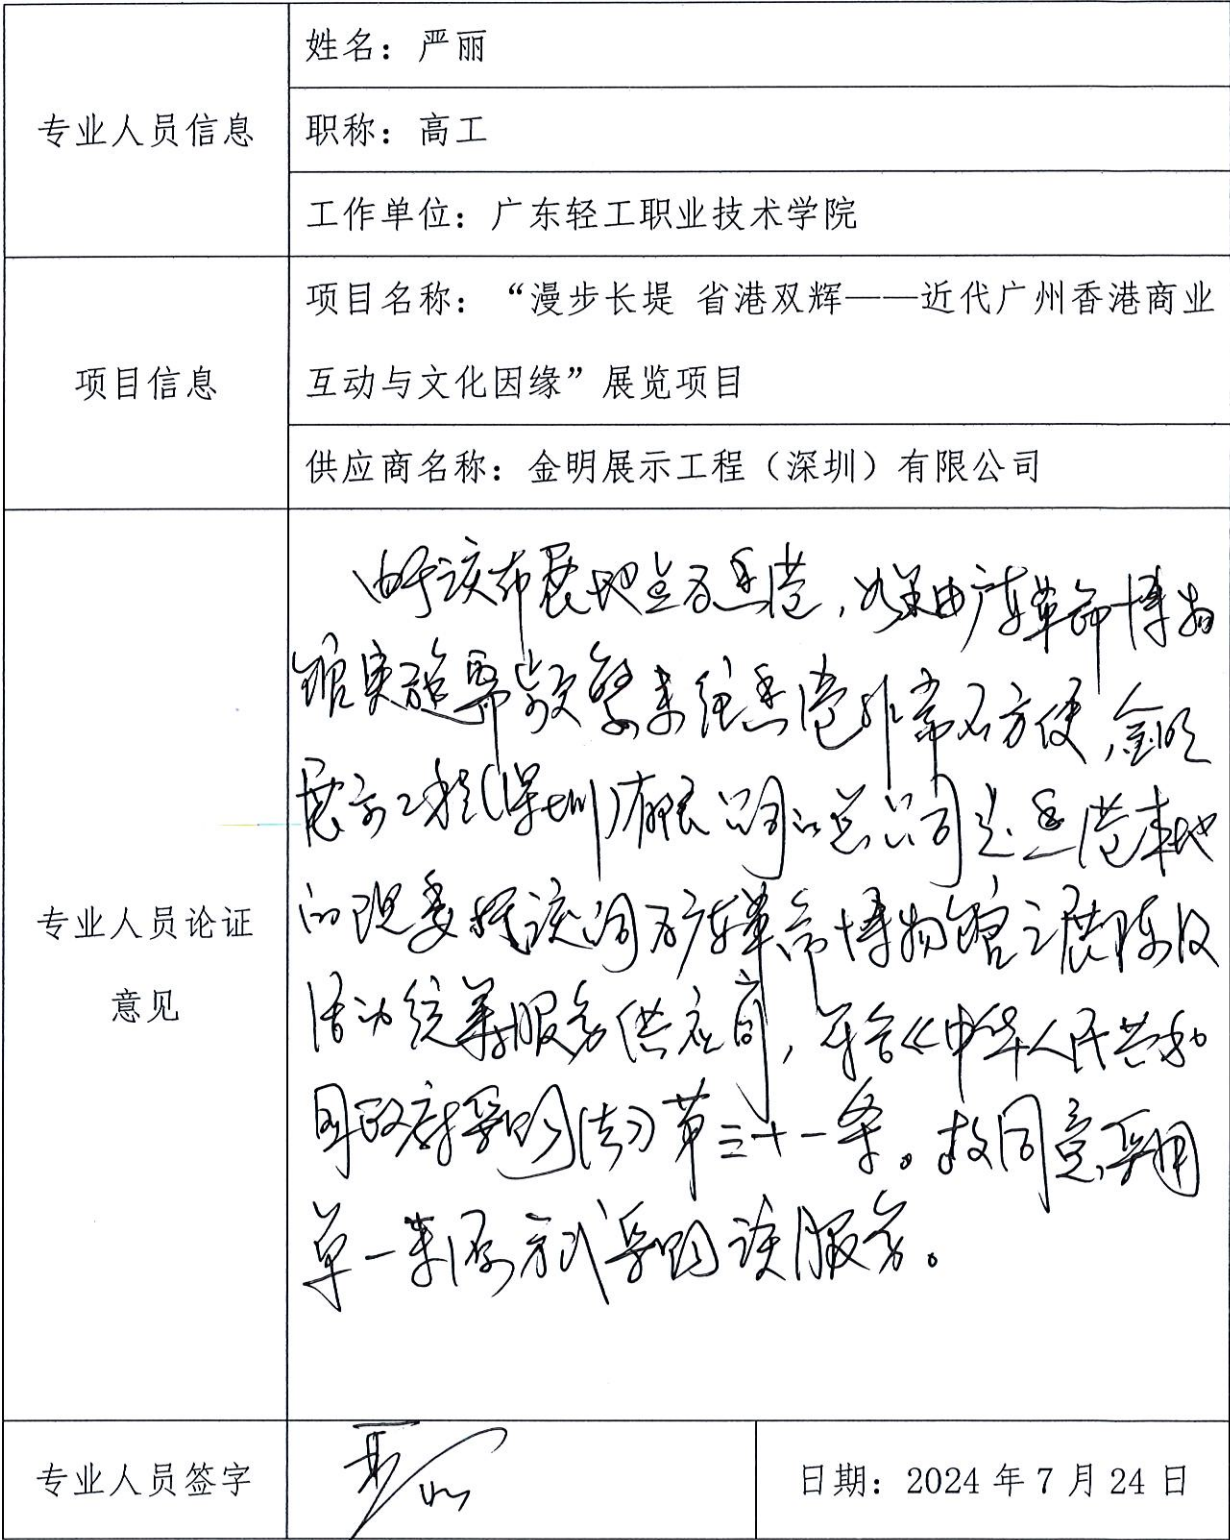 专业人员信息
姓名：严丽
职称：高工
工作单位：广东轻工职业技术学院
项目信息
项目名称：“漫步长堤 省港双辉——近代广州香港商业
互动与文化因缘”展览项目
供应商名称：金明展示工程（深圳）有限公司
专业人员论证
意见
由于该布展地点在香港，如果由广东革命博物
馆实施需频繁来往香港非常不方便，金明
展示工程(深圳)有限公司的总公司是香港本地
的现委托该公司为广东革命博物馆之展陈及
活动统筹服务供应商，符合《中华人民共和
国政府采购法》第三十一条。故同意采用
单一来源方式采购该服务。
专业人员签字
严丽
日期：2024年7月24日